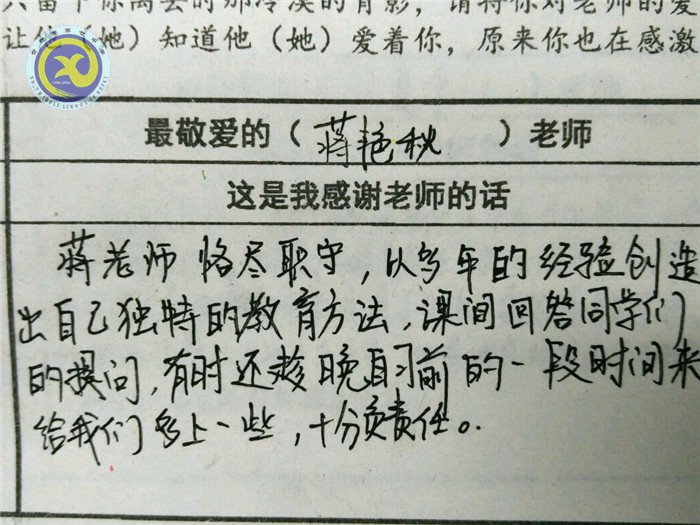 只留下你离去时那冷漠的背影，请将你对老师的爱
让他（她）知道他（她）爱着你，原来你也在感激
最敬爱的（蒋艳秋）老师
这是我感谢老师的话
蒋老师恪尽职守，以多年的经验创造
出自己独特的教育方法，课间回答同学们
的提问，有时还趁晚自习前的一段时间来
给我们多上一些，十分负责任。